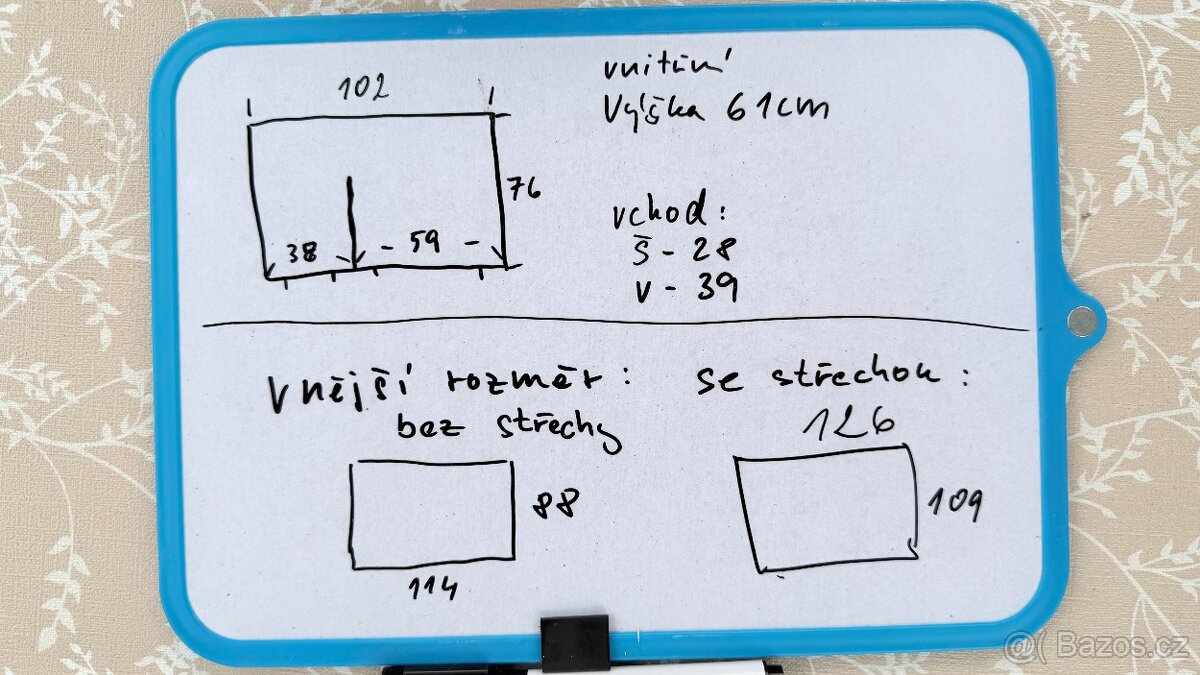 102
76
38
- 59 -
vnitřní
výška 61cm
vchod:
š - 28
v - 39
Vnější rozměr:
bez střechy
88
114
se střechou:
126
109
@( Bazos.cz